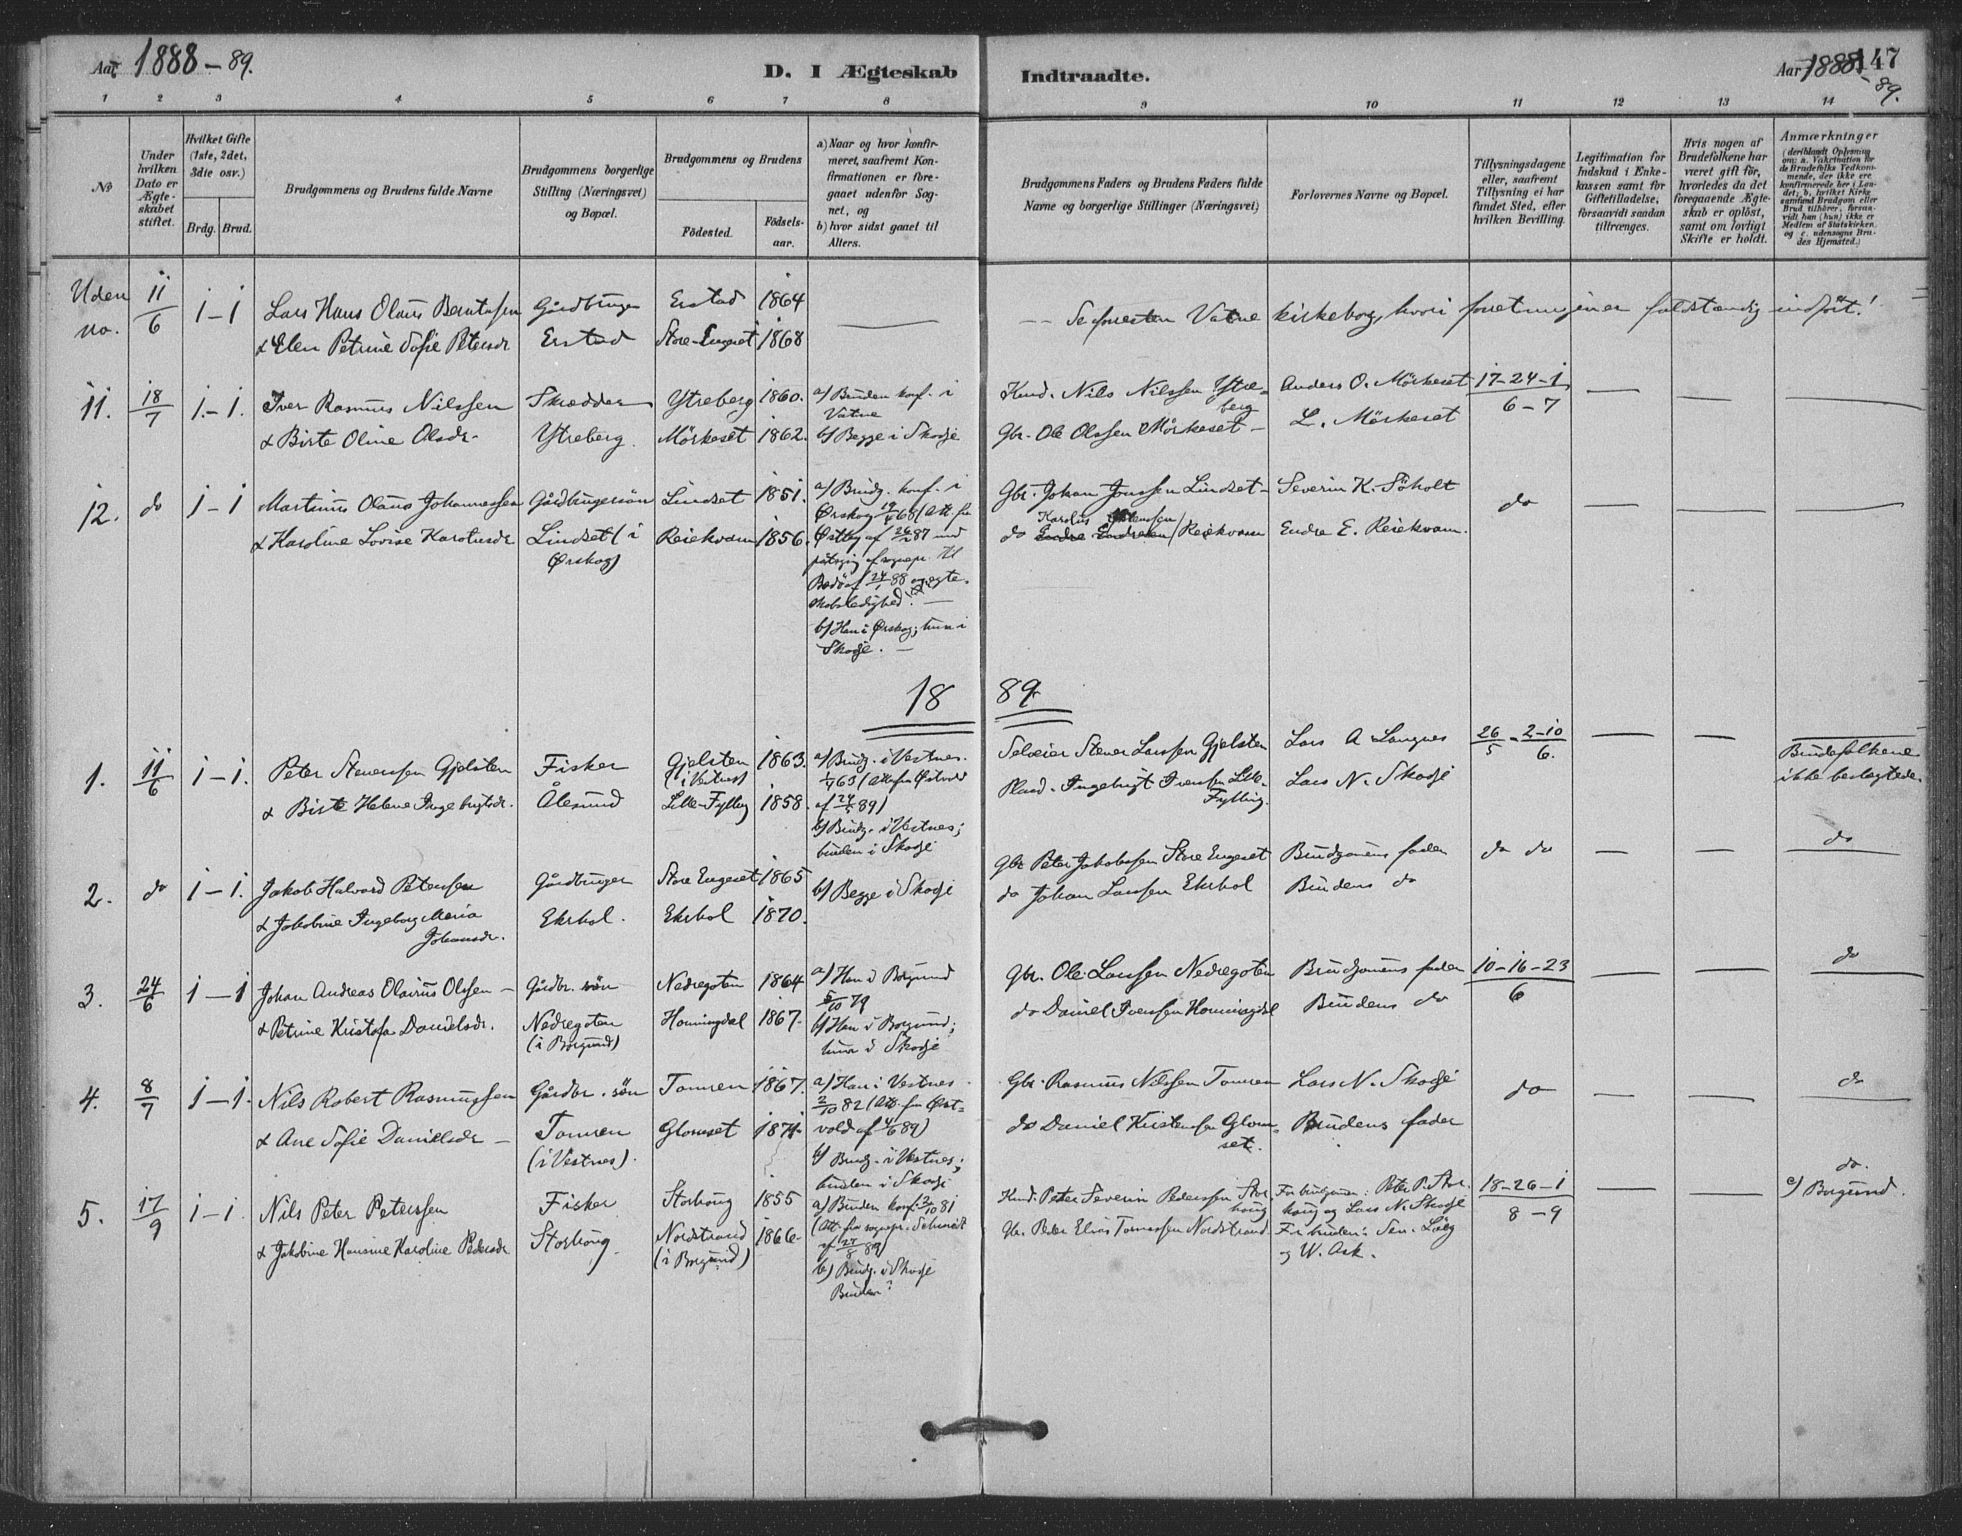 Aar 1888 – 89.
D. I Ægteskab Indtraadte.
Aar 1888 147
– 89.
1 2 3 4 5 6 7 8 9 10 11 12 13 14
No
Under hvilken Dato er Ægteskabet stiftet.
Hvilket Gifte (1ste, 2det, 3die osv.)
Brdg. Brud.
Brudgommens og Brudens fulde Navne
Brudgommens borgerlige Stilling (Næringsvei) og Bopæl.
Brudgommens og Brudens
Fødested.
Fødselsaar.
a) Naar og hvor konfirmeret, saafremt Konfirmationen er foregaaet udenfor Sognet, og
b) hvor sidst gaaet til Alters.
Brudgommens Faders og Brudens Faders fulde Navne og borgerlige Stillinger (Næringsvei)
Forlovernes Navne og Bopæl.
Tillysningsdagene eller, saafremt Tillysning ei har fundet Sted, efter hvilken Bevilling.
Legitimation for Indskud i Enkekassen samt for Giftetilladelse, forsaavidt saadan tiltrænges.
Hvis nogen af Brudefolkene har været gift før, hvorledes da det foregaaende Ægteskab er opløst, samt om lovligt Skifte er holdt.
Anmærkninger
(deriblandt Oplysning om: a. Vakcination for de Brudefolks Vedkommende, der ikke ere konfirmerede her i Landet; b. hvilket Kirkesamfund Brudgom eller Brud tilhører, forsaavidt han (hun) ikke er Medlem af Statskirken, og c. udensogns Brudes Hjemsted.)
Uden no. 11/6 1 – 1 Lars Hans Olaus Berntssen Gårdbruger Erstad 1864 — Se forresten Vatne kirkebog, hvori forretningen er fuldstændig indført!
& Elen Petrine Sofie Petersdr Erstad Store-Engeset 1868
11. 18/7 1. – 1. Iver Rasmus Nilssen Skrædder Ytreberg 1860. a) Bruden konf. i Vatne Kund. Nils Nilssen Ytreberg Anders O. Mörkeset 17 – 24 – 1 / 6 – 7
& Birte Oline Olsdr. Ytreberg. Mörkeset 1862. b) Begge i Skodje Gbr. Ole Olssen Mörkeset – L. Mörkeset
12. do 1 – 1 Martinus Olaus Johannessen Gårdbrugersön Lindset 1851. a) Brudg. konf. i Gbr. Johan Jonssen Lindset – Severin K. Söholt do
& Karoline Lovise Karolusdr Lindset (i Ørskog) Reiekvam 1856. Ørskog 68 (Att. fra do Karolus / Reiekvam Endre E. Reiekvam.
Østby af 26/2 87 med
påtegn. af sognepr.
Bodö af 24/1 88 om ægte-
skabsledighed. —
b) Han i Ørskog; hun i
Skodje. —
18 89.
1. 11/6 1 – 1. Peter Stenerssen Gjelsten Fisker Gjelsten (i Vestnes) 1863. a) Brudg. i Vestnes. Selveier Stener Larssen Gjelsten Lars A. Langnes 26/5 – 2 – 10/6. Brudefolkene ikke beslægtede.
& Birte Helene Ingebrigtsdr. Ålesund Lille-Fylling 1858. (Att. fra Østvold af 24/5 89) Plads. Ingebrigt Iverssen Lille-Fylling. Lars N. Skodje
b) Brudg. i Vestnes;
bruden i Skodje
2. do 1 – 1. Jakob Halvard Peterssen Gårdbruger Store Engeset 1865 b) Begge i Skodje Gbr. Peter Jakobssen Store Engeset Brudgomens fader do do do
& Jakobine Ingeborg Maria Johansdr. Ekrhol. Ekrhol 1870. do Johan Larssen Ekrhol Brudens do
3. 24/6 1 – 1 Johan Andreas Olairus Olssen – Gårdbr. sön Nedregoten 1864 a) Han i Borgund Gbr. Ole Larssen Nedregoten Brudgomens fader 10 – 16 – 23 / 6 do
& Petrine Kristofa Danielsdr. Nedregoten (i Borgund) Honningdal 1867. 5/10 79 do Daniel Iverssen Honningdal Brudens do
b) Han i Borgund;
hun i Skodje
4. 8/7 1 – 1. Nils Robert Rasmussen Gårdbr. sön Tomren 1867. a) Han i Vestnes Gbr. Rasmus Nilssen Tomren Lars N. Skodje do do
& Ane Sofie Danielsdr – Tomren (i Vestnes). Glomset 1871. 2/10 82 (Att. fra Østvold af 4/6 89) do Daniel Kristenssen Glomset. Brudens fader
b) Brudg. i Vestnes;
bruden i Skodje
5. 17/9 1 – 1. Nils Peter Peterssen Fisker Storhoug 1855 a) Bruden konf. 81 Kund. Peter Severin Pederssen Storhoug For brudgomen: Peter P. Storhoug og Lars N. Skodje 18 – 26 – 1 / 8 – 9 do. c) Borgund.
& Jakobine Hansine Karoline Pedersdr Storhoug. Nordstrand (i Borgund) 1866. (Att. fra sognepr. Schmidt af 27/8 89) Gbr. Peder Elias Tomassen Nordstrand For bruden: Sev. og W. Ask.
b) Brudg. i Skodje
Bruden?